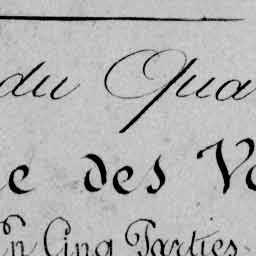 du Qua
e des V
En Cinq Parties